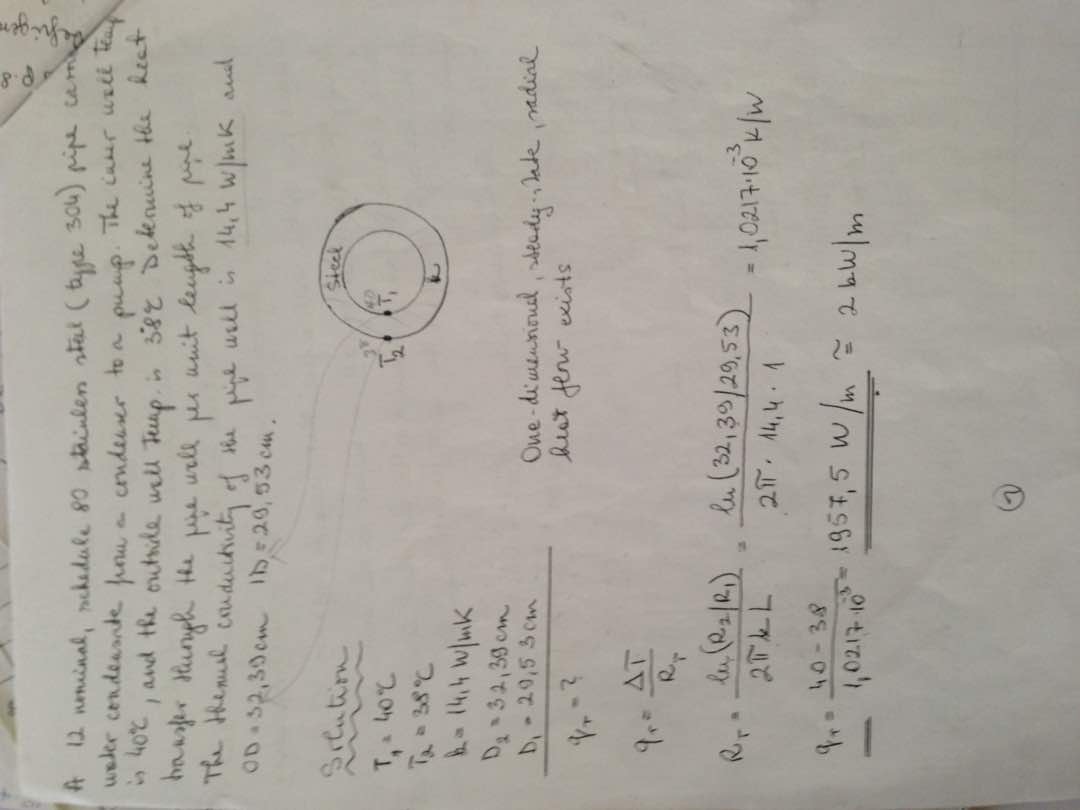 A 12 nominal, schedule 80 stainless steel (type 304) pipe carries
water condensate from a condenser to a pump. The inner wall temp
is 40℃, and the outside wall temp. is 38℃ Determine the heat
transfer through the pipe wall per unit length of pipe.
The thermal conductivity of the pipe wall is 14,4 W/mK and
OD = 32,39 cm ID = 29,53 cm.
Solution
T1 = 40℃
T2 = 38℃
k = 14,4 W/mK
D2 = 32,39 cm
D1 = 29,53 cm
qr = ?
Steel
40
T1
38
T2
k
One-dimensional, steady-state, radial
heat flow exists
qr = ΔT / Rr
Rr = ln(R2/R1) / 2πkL = ln(32,39/29,53) / 2π · 14,4 · 1 = 1,0217·10⁻³ K/W
qr = 40-38 / 1,0217·10⁻³ = 1957,5 W/m ≈ 2 kW/m
1